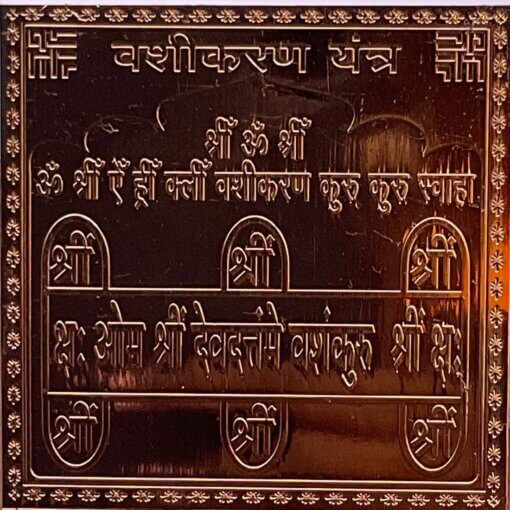 वशीकरण यंत्र
श्रीँ ॐ श्रीँ
ॐ श्रीँ ऐँ ह्रीँ क्लीँ वशीकरण कुरु कुरु स्वाहा
श्रीँ श्रीँ श्रीँ
क्षः ओम श्रीँ देवदत्तंमे वशंकुरु श्रीँ क्षः
श्रीँ श्रीँ श्रीँ